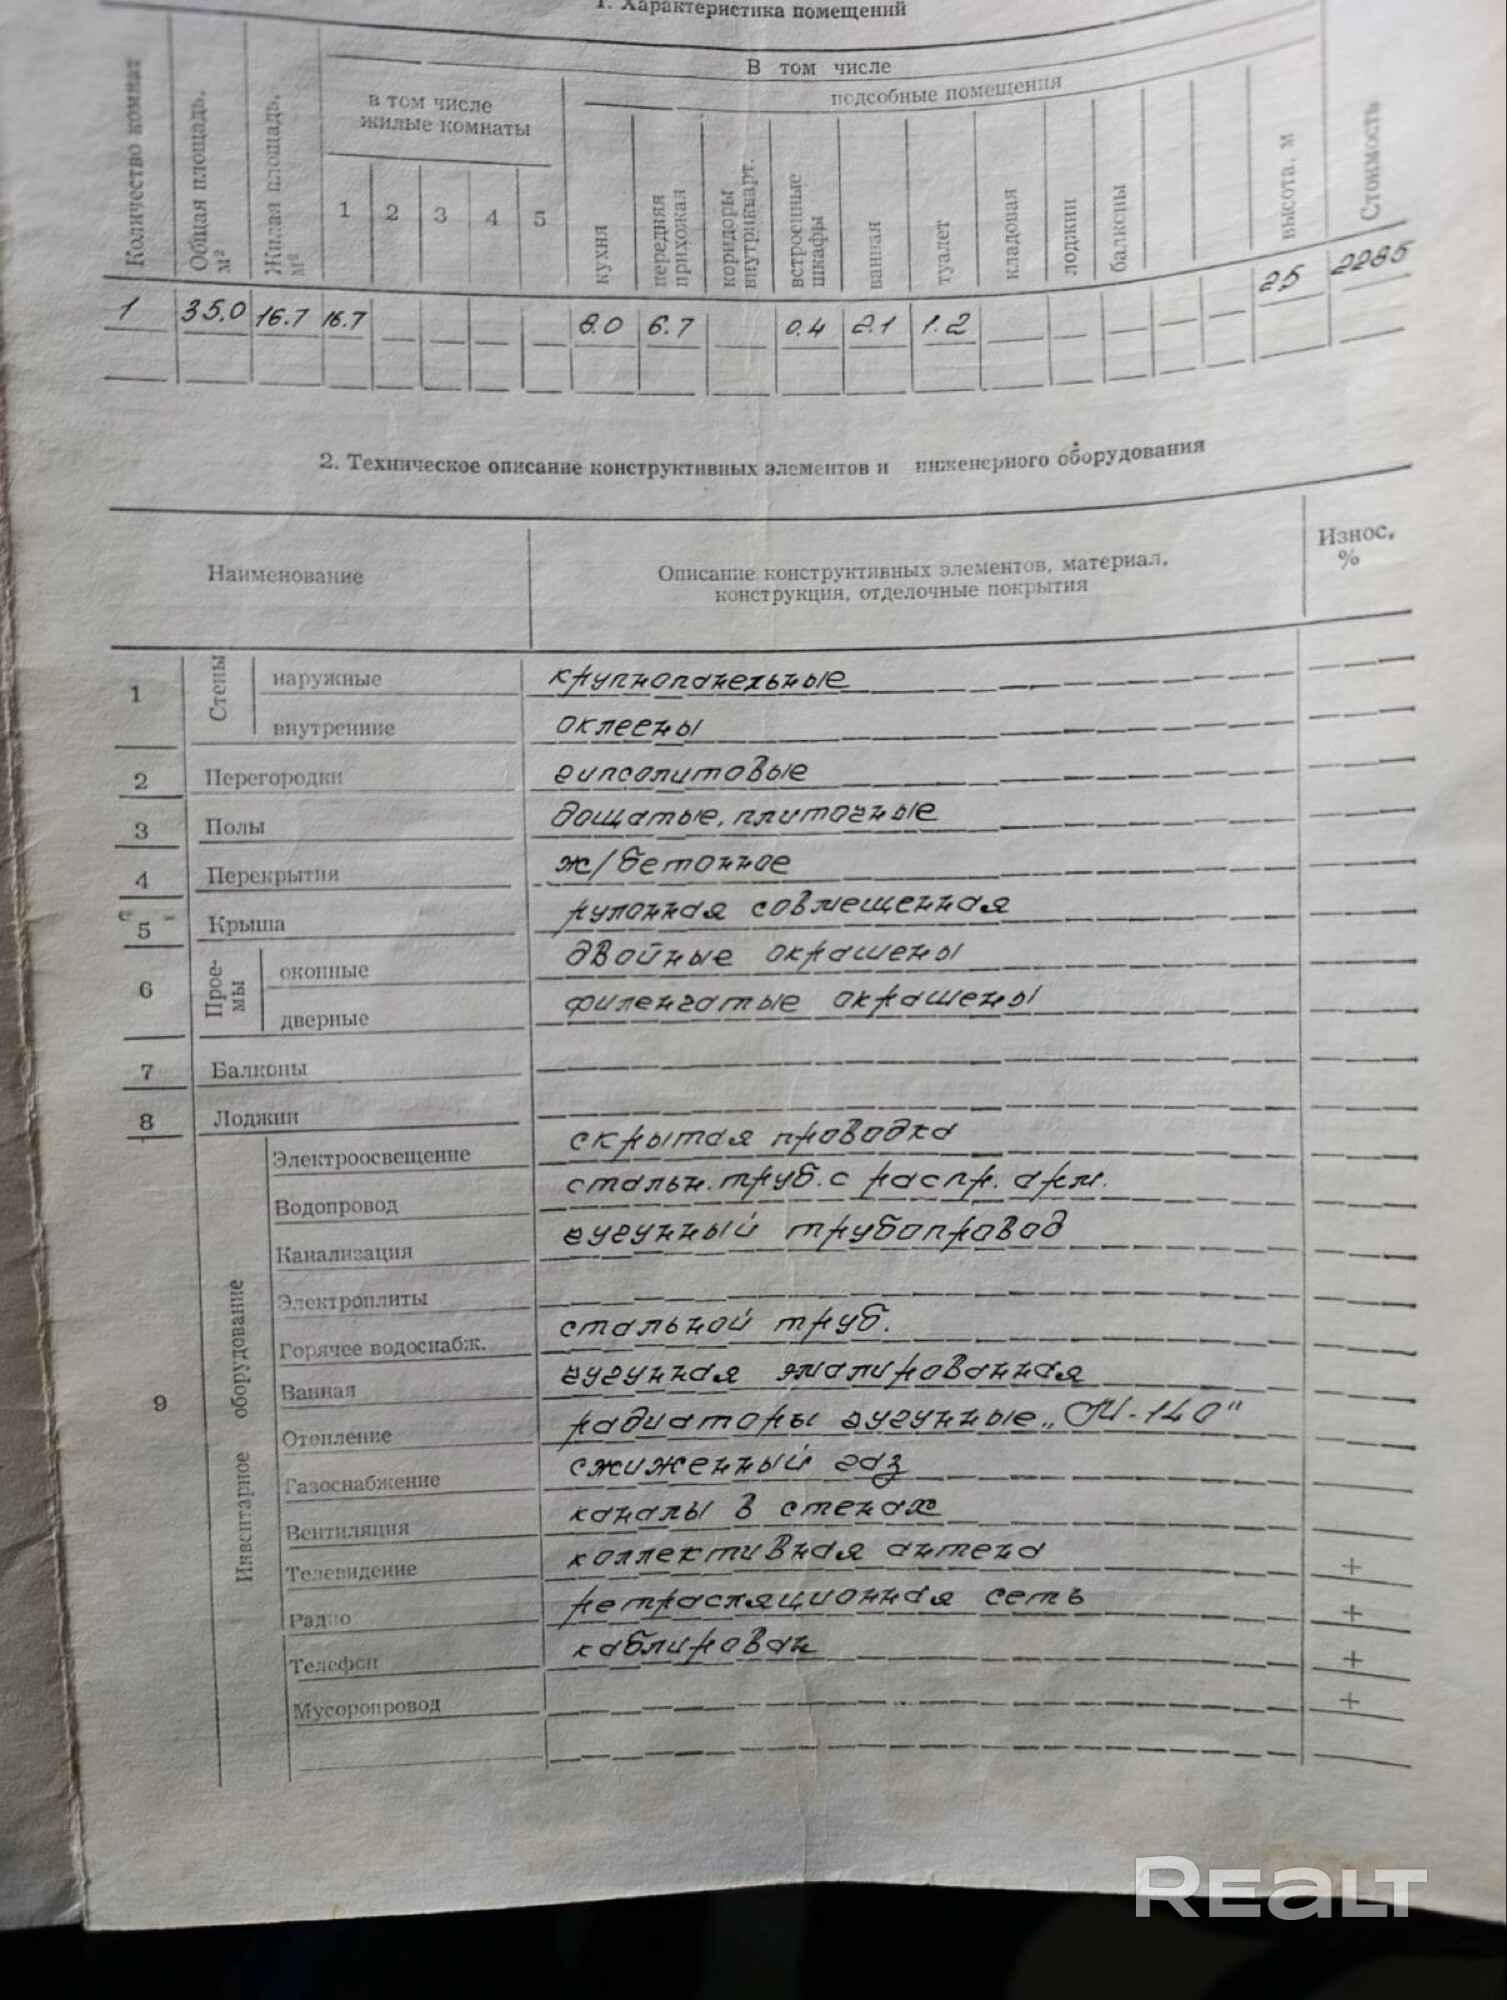 1. Характеристика помещений
Количество комнат
Общая площадь, м²
Жилая площадь, м²
В том числе
в том числе жилые комнаты
подсобные помещения
1 2 3 4 5
кухня
передняя прихожая
коридоры внутрикварт.
встроенные шкафы
ванная
туалет
кладовая
лоджии
балконы
высота, м
Стоимость
1 35.0 16.7 16.7 — — — — 8.0 6.7 — 0.4 2.1 1.2 — — — — — 2.5 2285
2. Техническое описание конструктивных элементов и инженерного оборудования
Наименование
Описание конструктивных элементов, материал,
конструкция, отделочные покрытия
Износ, %
1 Стены наружные крупнопанельные
внутренние оклеены
2 Перегородки гипсолитовые
3 Полы дощатые, плиточные
4 Перекрытия ж/бетонное
5 Крыша рулонная совмещенная
6 Прое-мы оконные двойные окрашены
дверные филенчатые окрашены
7 Балконы
8 Лоджии
9 Инвентарное оборудование
Электроосвещение скрытая проводка
Водопровод стальн. труб. с распр. арм.
Канализация чугунный трубопровод
Электроплиты
Горячее водоснабж. стальной труб.
Ванная чугунная эмалированная
Отопление радиаторы чугунные „М-140"
Газоснабжение сжиженный газ
Вентиляция каналы в стенах
Телевидение коллективная антена +
Радио ретрасляционная сеть +
Телефон каблирован +
Мусоропровод +
REALT